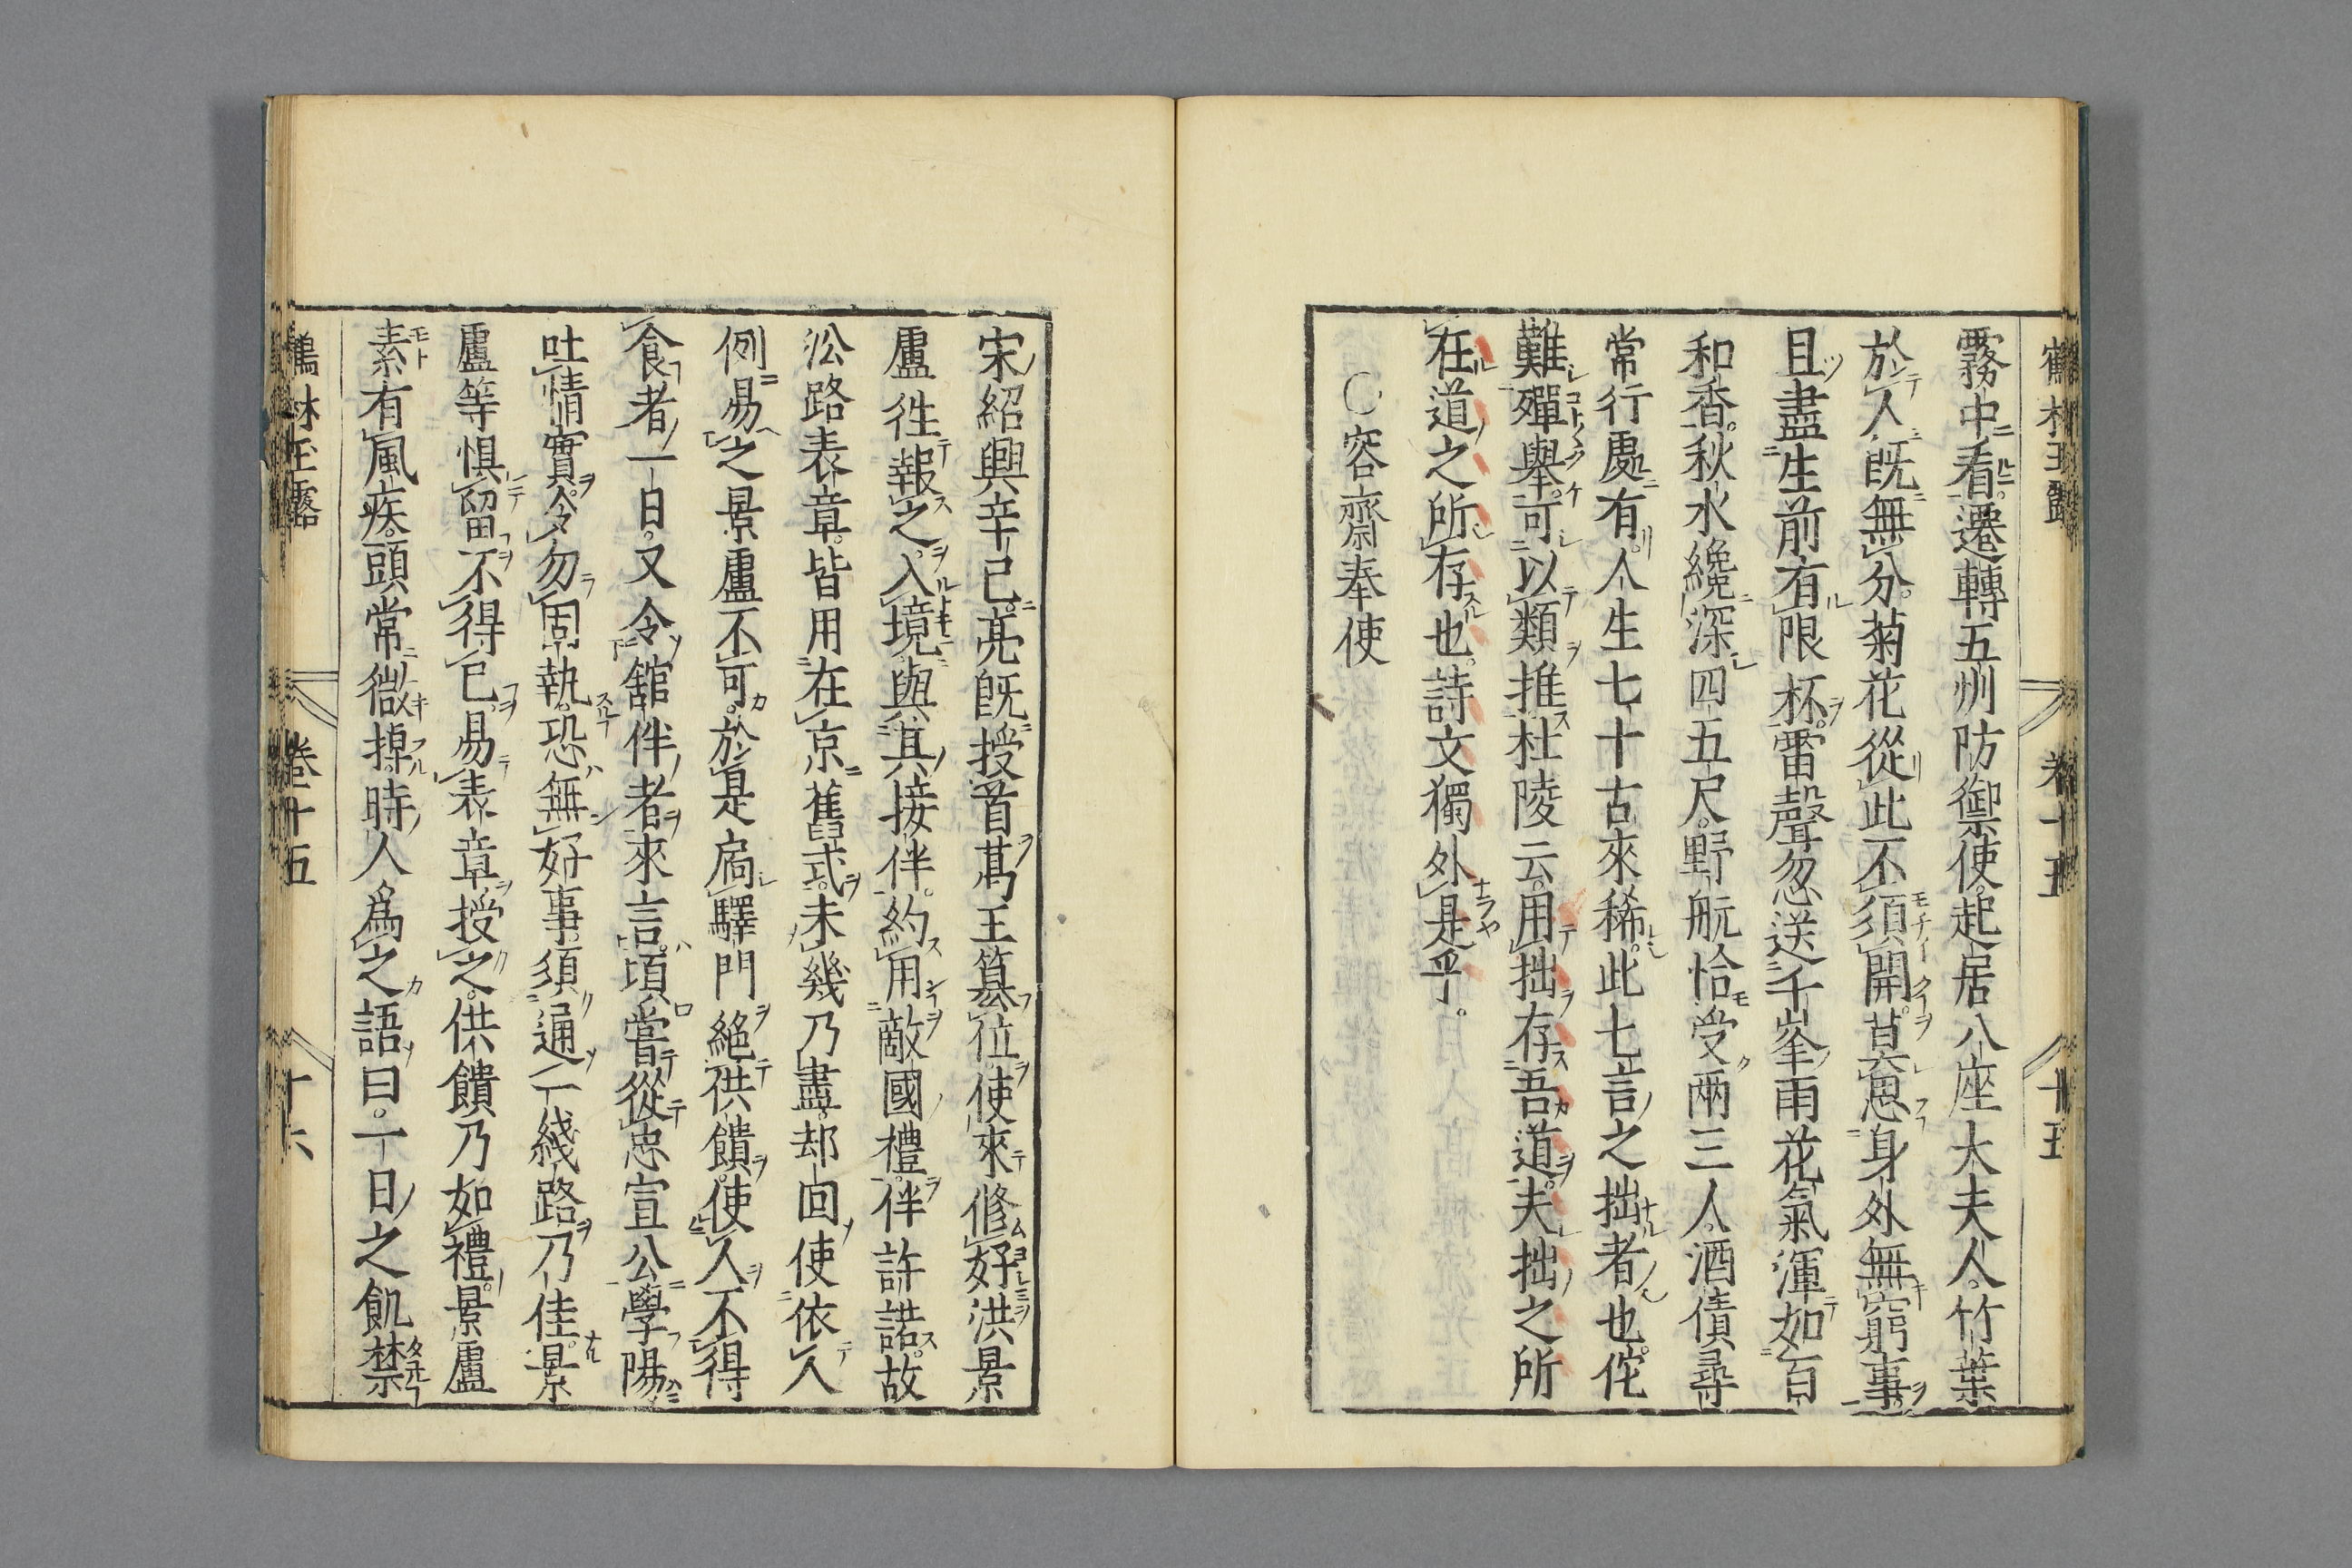 鶴林玉露 卷十五 十五
霧中看。遷轉五州防禦使。起居八座大夫人。竹葉
於人既無分。菊花從此不須開。莫思身外無窮事。
且盡生前有限杯。雷聲忽送千峯雨花氣渾如百
和香。秋水纔深四五尺。野航恰受兩三人。酒債尋
常行處有。人生七十古來稀。此七言之拙者也。佗
難殫舉。可以類推杜陵云。用拙存吾道。夫拙之所
在道之所存也。詩文獨外是乎。
○容齋奉使
宋紹興辛巳。亮既授首葛王簒位使來修好洪景
盧徃報之。入境與其接伴。約用敵國禮。伴許諾。故
㳂路表章。皆用在京舊式。未幾乃盡却回使依人
例易之景盧不可。於是扃驛門絕供饋。使人不得
食者一日。又令舘伴者來言。頃嘗從忠宣公學。陽
吐情實。令勿固執。恐無好事。須通一綫路乃佳。景
盧等懼留不得已易表章授之。供饋乃如禮。景盧
素有風疾。頭常微掉。時人爲之語曰。一日之飢禁
鶴林玉露 卷十五 十六